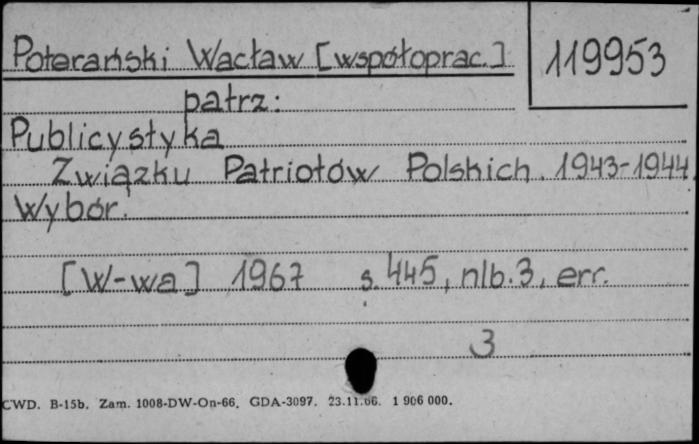 Poterański Wacław [współoprac.]
119953
patrz:
Publicystyka
Związku Patriotów Polskich. 1943-1944.
Wybór.
[W-wa] 1967 s. 445, nlb. 3, err.
3
CWD. B-15b. Zam. 1008-DW-On-66. GDA-3097. 23.11.66. 1 906 000.